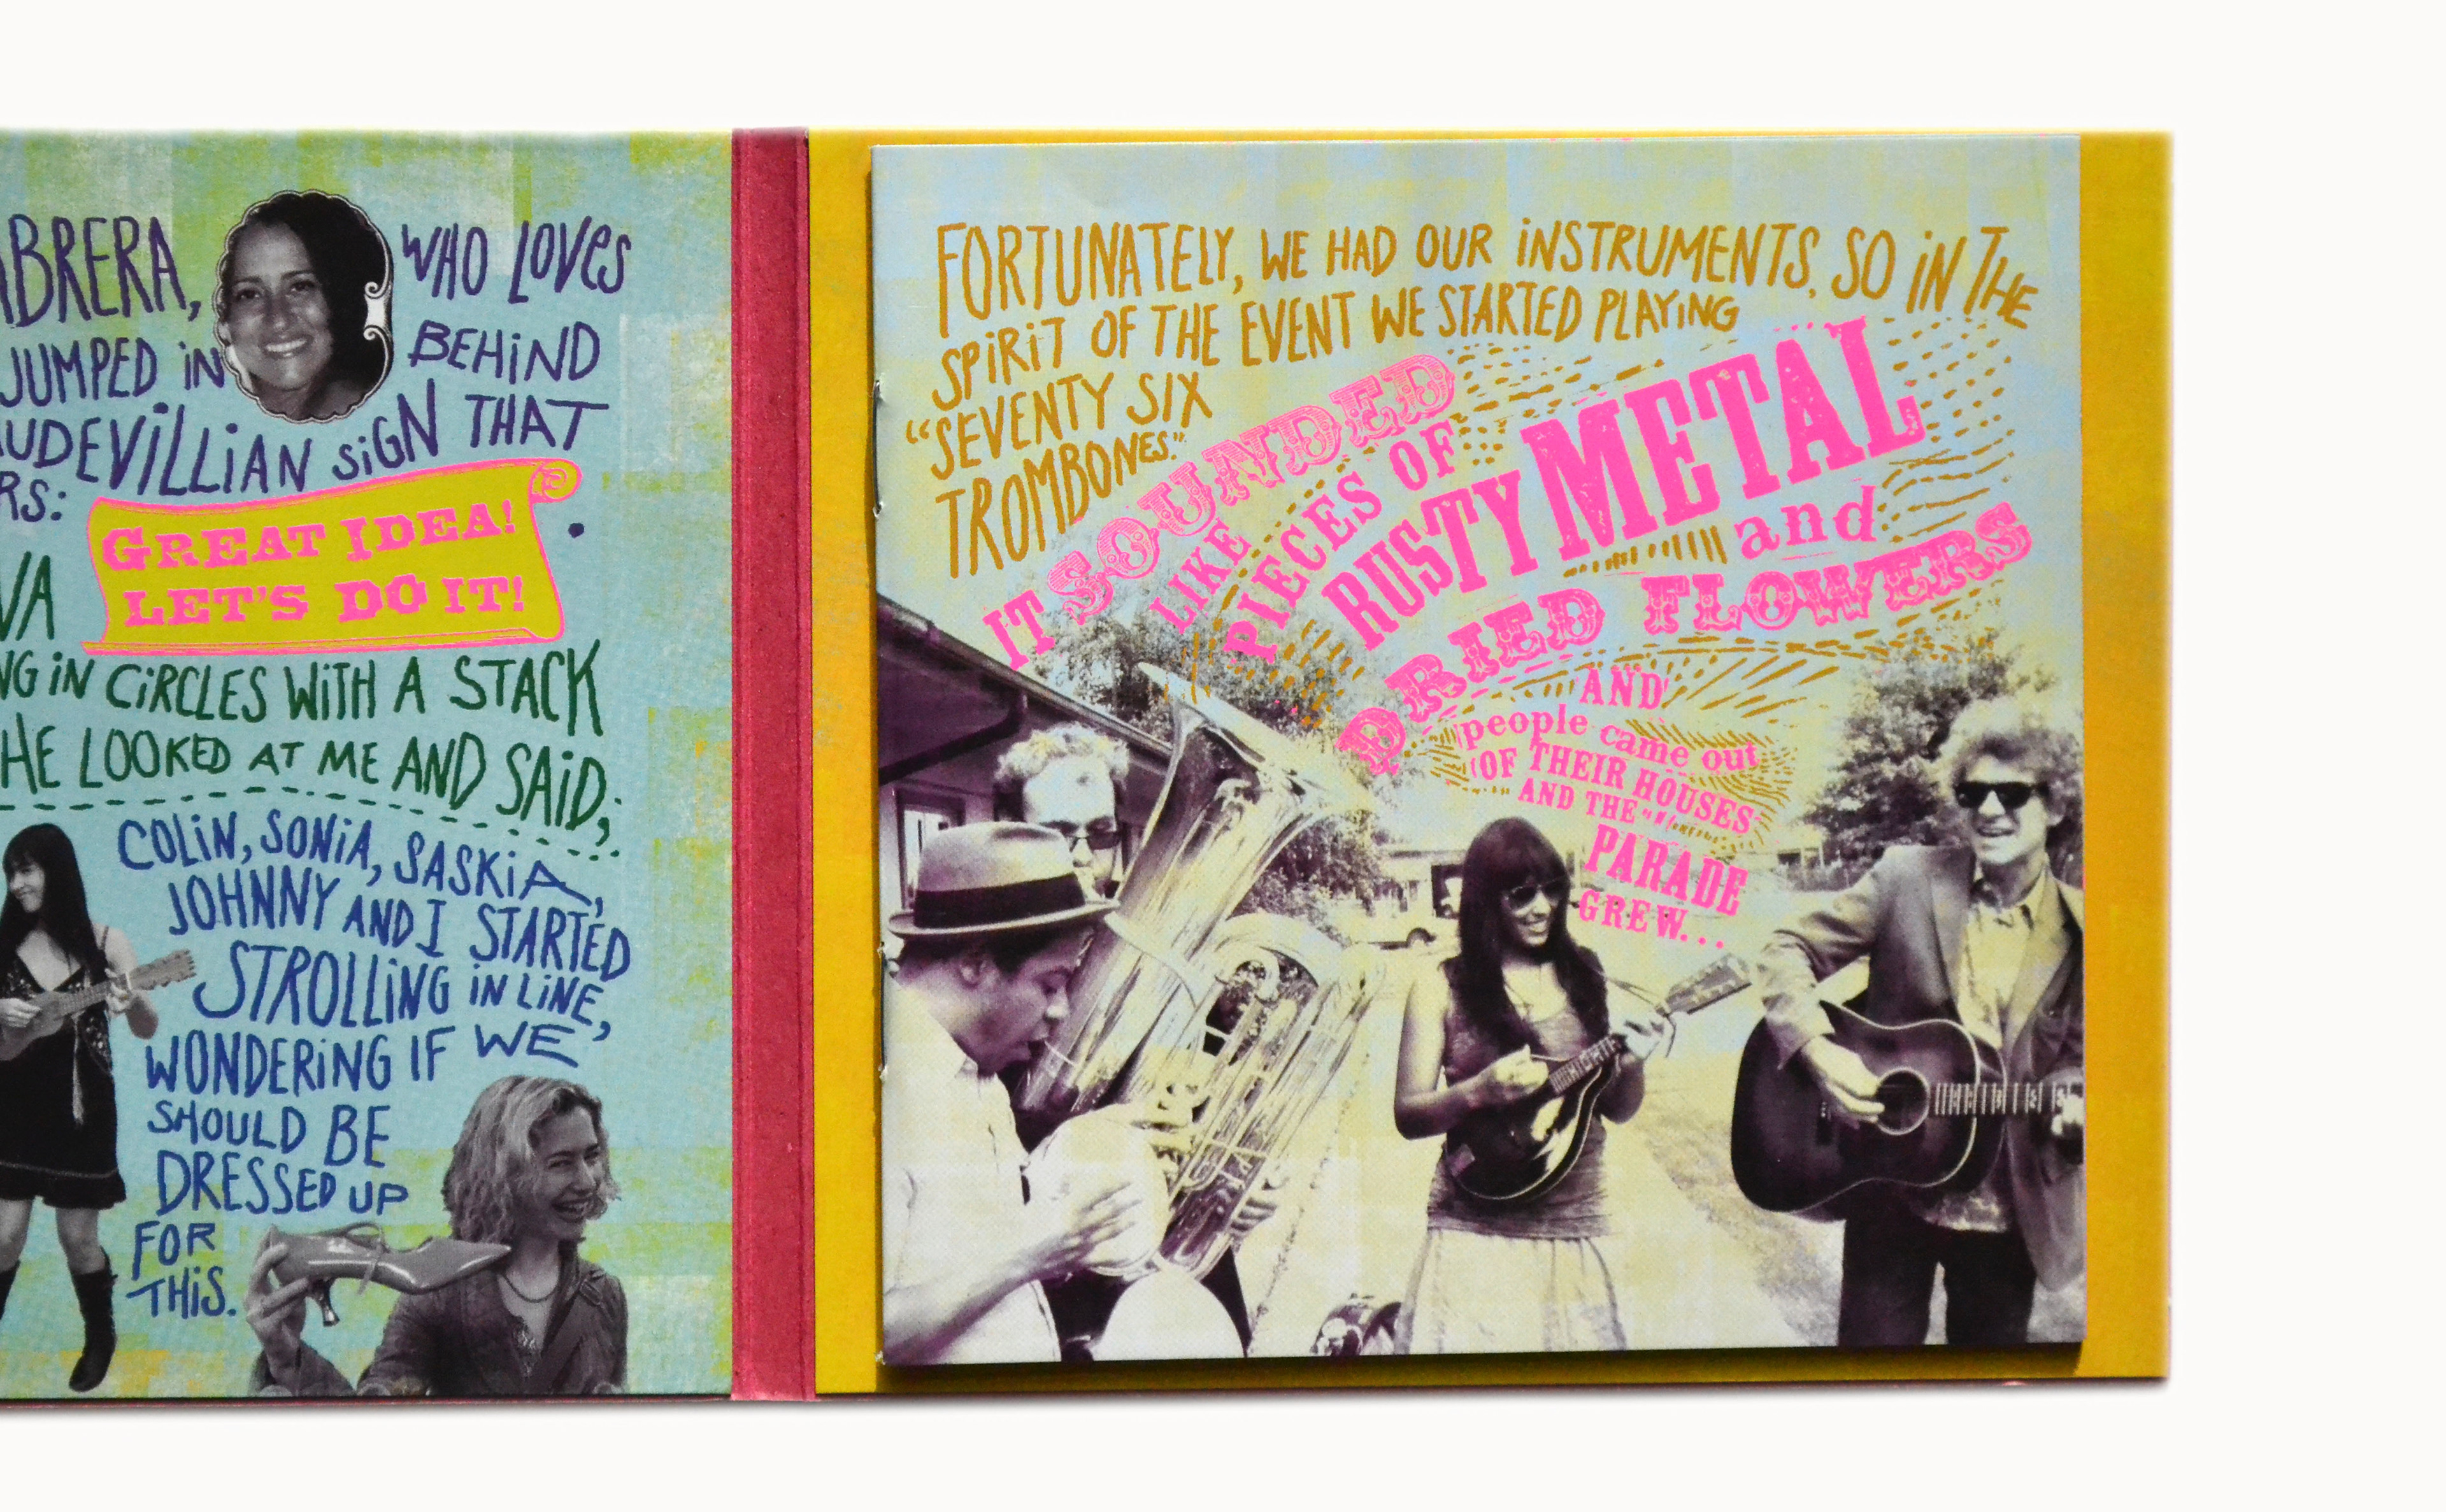 ABRERA, WHO LOVES
JUMPED IN BEHIND
AUDEVILLIAN SIGN THAT
RS:
GREAT IDEA!
LET'S DO IT!
.
VA
NG IN CIRCLES WITH A STACK
HE LOOKED AT ME AND SAID,
COLIN, SONIA, SASKIA,
JOHNNY AND I STARTED
STROLLING IN LINE,
WONDERING IF WE
SHOULD BE
DRESSED UP
FOR
THIS.
FORTUNATELY, WE HAD OUR INSTRUMENTS, SO IN THE
SPIRIT OF THE EVENT WE STARTED PLAYING
"SEVENTY SIX
TROMBONES."
IT SOUNDED
LIKE
PIECES OF
RUSTY METAL
and
DRIED FLOWERS
AND
people came out
OF THEIR HOUSES
AND THE
PARADE
GREW...